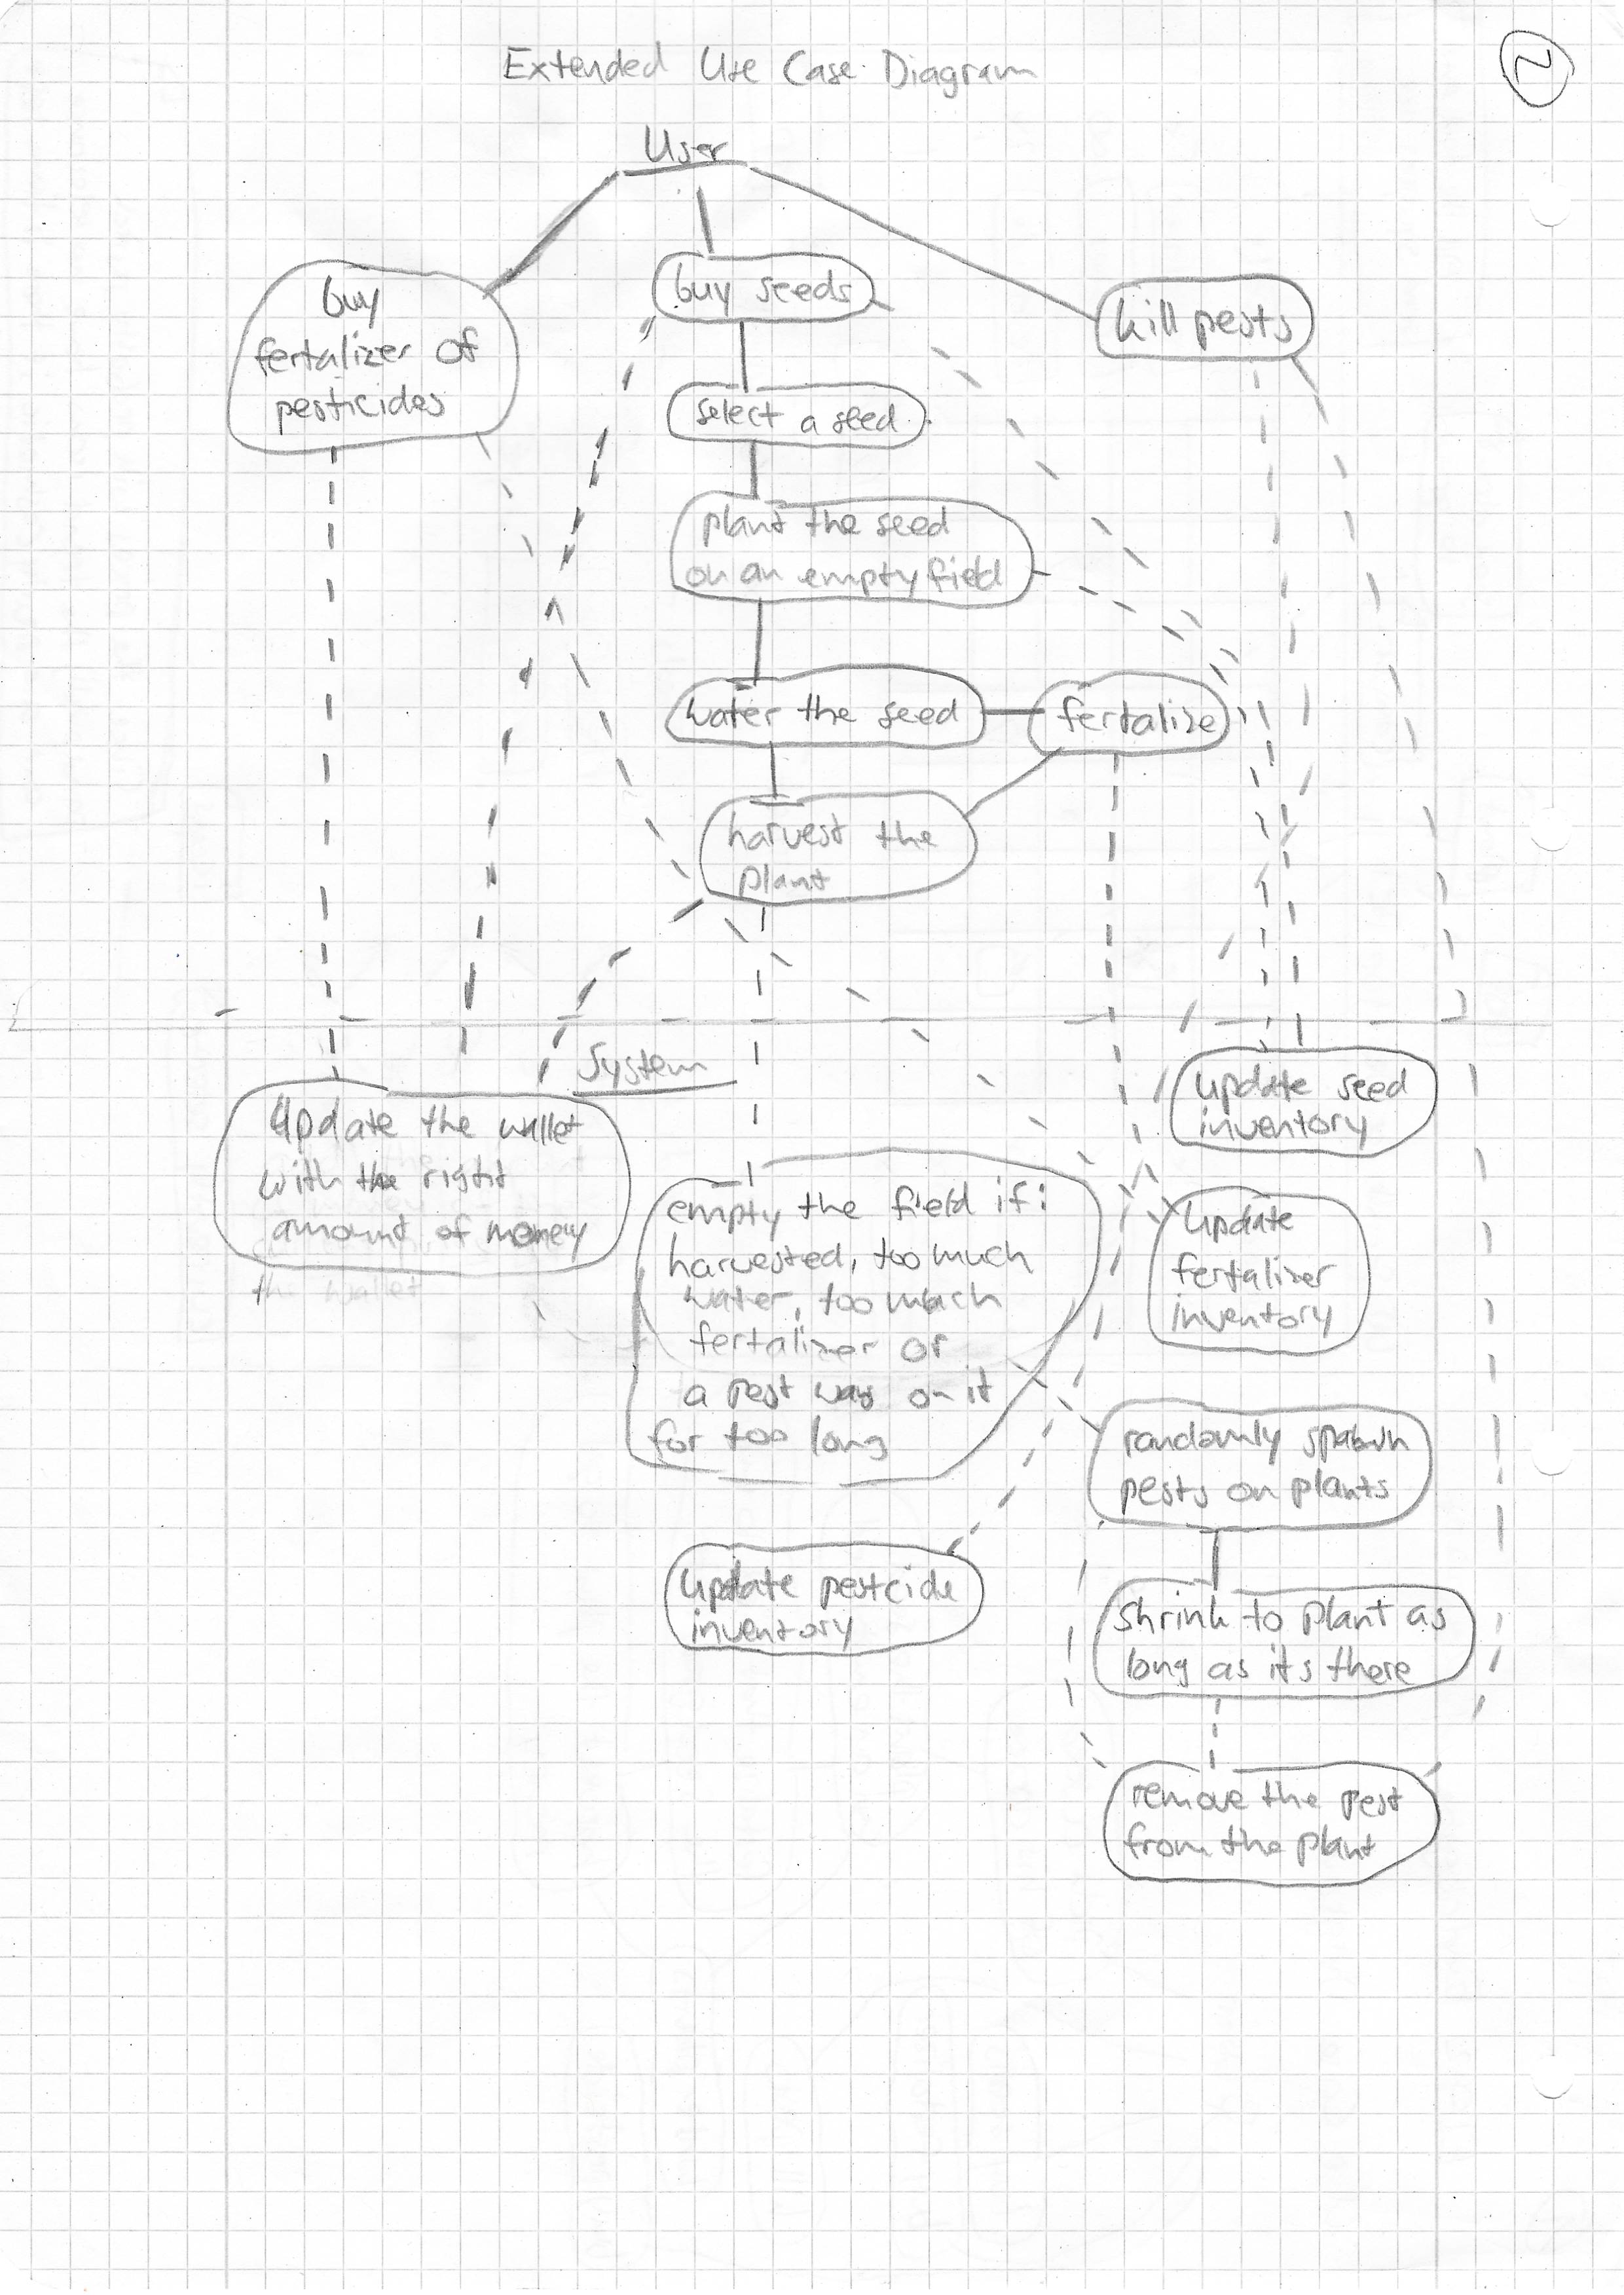 Extended Use Case Diagram
2
User
buy
fertalizer of
pesticides
buy seeds
kill pests
select a seed
plant the seed
on an empty field
water the seed
fertalize
harvest the
plant
System
Update the wallet
with the right
amount of money
the wallet
update seed
inventory
empty the field if:
harvested, too much
water, too much
fertalizer or
a pest was on it
for too long
Update
fertalizer
inventory
randomly spawn
pests on plants
Update pestcide
inventory
Shrink to plant as
long as its there
remove the pest
from the plant